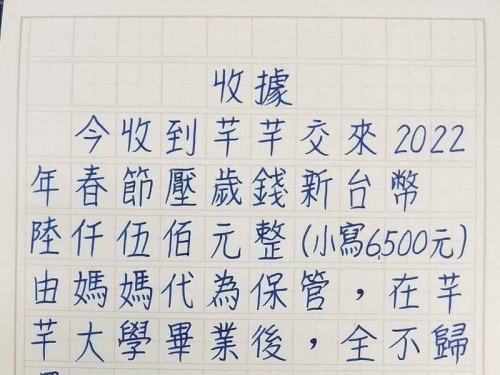 收據
今收到芊芊交來2022
年春節壓歲錢新台幣
陸仟伍佰元整(小寫6,500元)
由媽媽代為保管，在芊
芊大學畢業後，全不歸